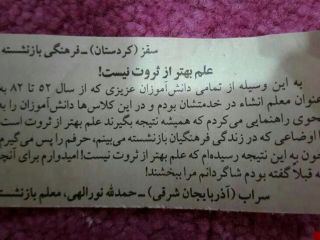 سقز (کردستان) ـ فرهنگی بازنشسته
علم بهتر از ثروت نیست!
به این وسیله از تمامی دانش‌آموزان عزیزی که از سال ۵۲ تا ۸۲ به
عنوان معلم انشاء در خدمتشان بودم و در این کلاس‌ها دانش‌آموزان را به
نحوی راهنمایی می‌کردم که همیشه نتیجه بگیرند علم بهتر از ثروت است
با اوضاعی که در زندگی فرهنگیان بازنشسته می‌بینم، حرفم را پس می‌گیرم
چون به این نتیجه رسیده‌ام که علم بهتر از ثروت نیست! امیدوارم برای آنچه
قبلاً گفته بودم شاگردانم مرا ببخشند!
سراب (آذربایجان شرقی) ـ حمدالله نورالهی، معلم بازنشسته